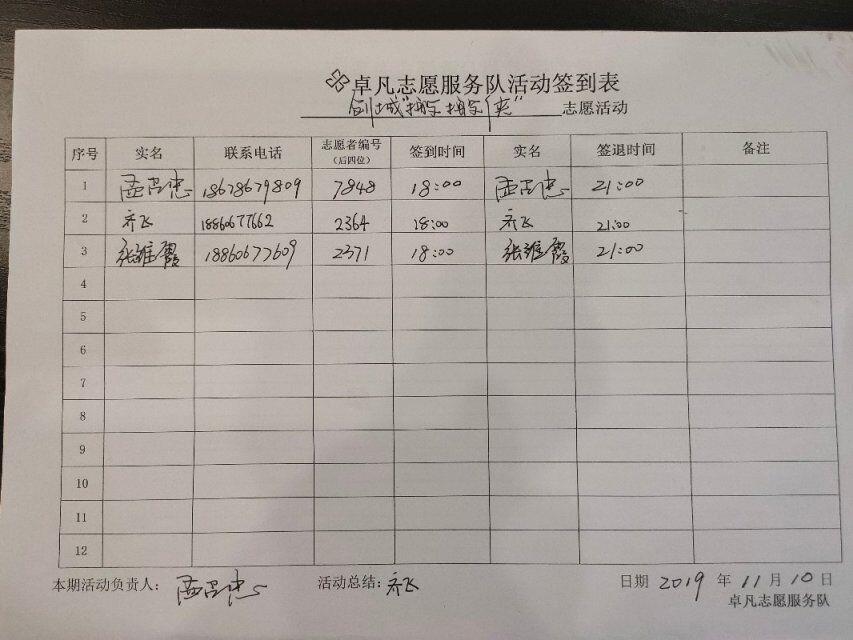 卓凡志愿服务队活动签到表
创城 志愿活动
序号 实名 联系电话 志愿者编号（后四位） 签到时间 实名 签退时间 备注
1 孟昌忠 18678679809 7848 18:00 孟昌忠 21:00
2 齐飞 18860677662 2364 18:00 齐飞 21:00
3 张维霞 18860677609 2371 18:00 张维霞 21:00
4
5
6
7
8
9
10
11
12
本期活动负责人：孟昌忠 活动总结:齐飞 日期 2019 年 11 月 10 日
卓凡志愿服务队